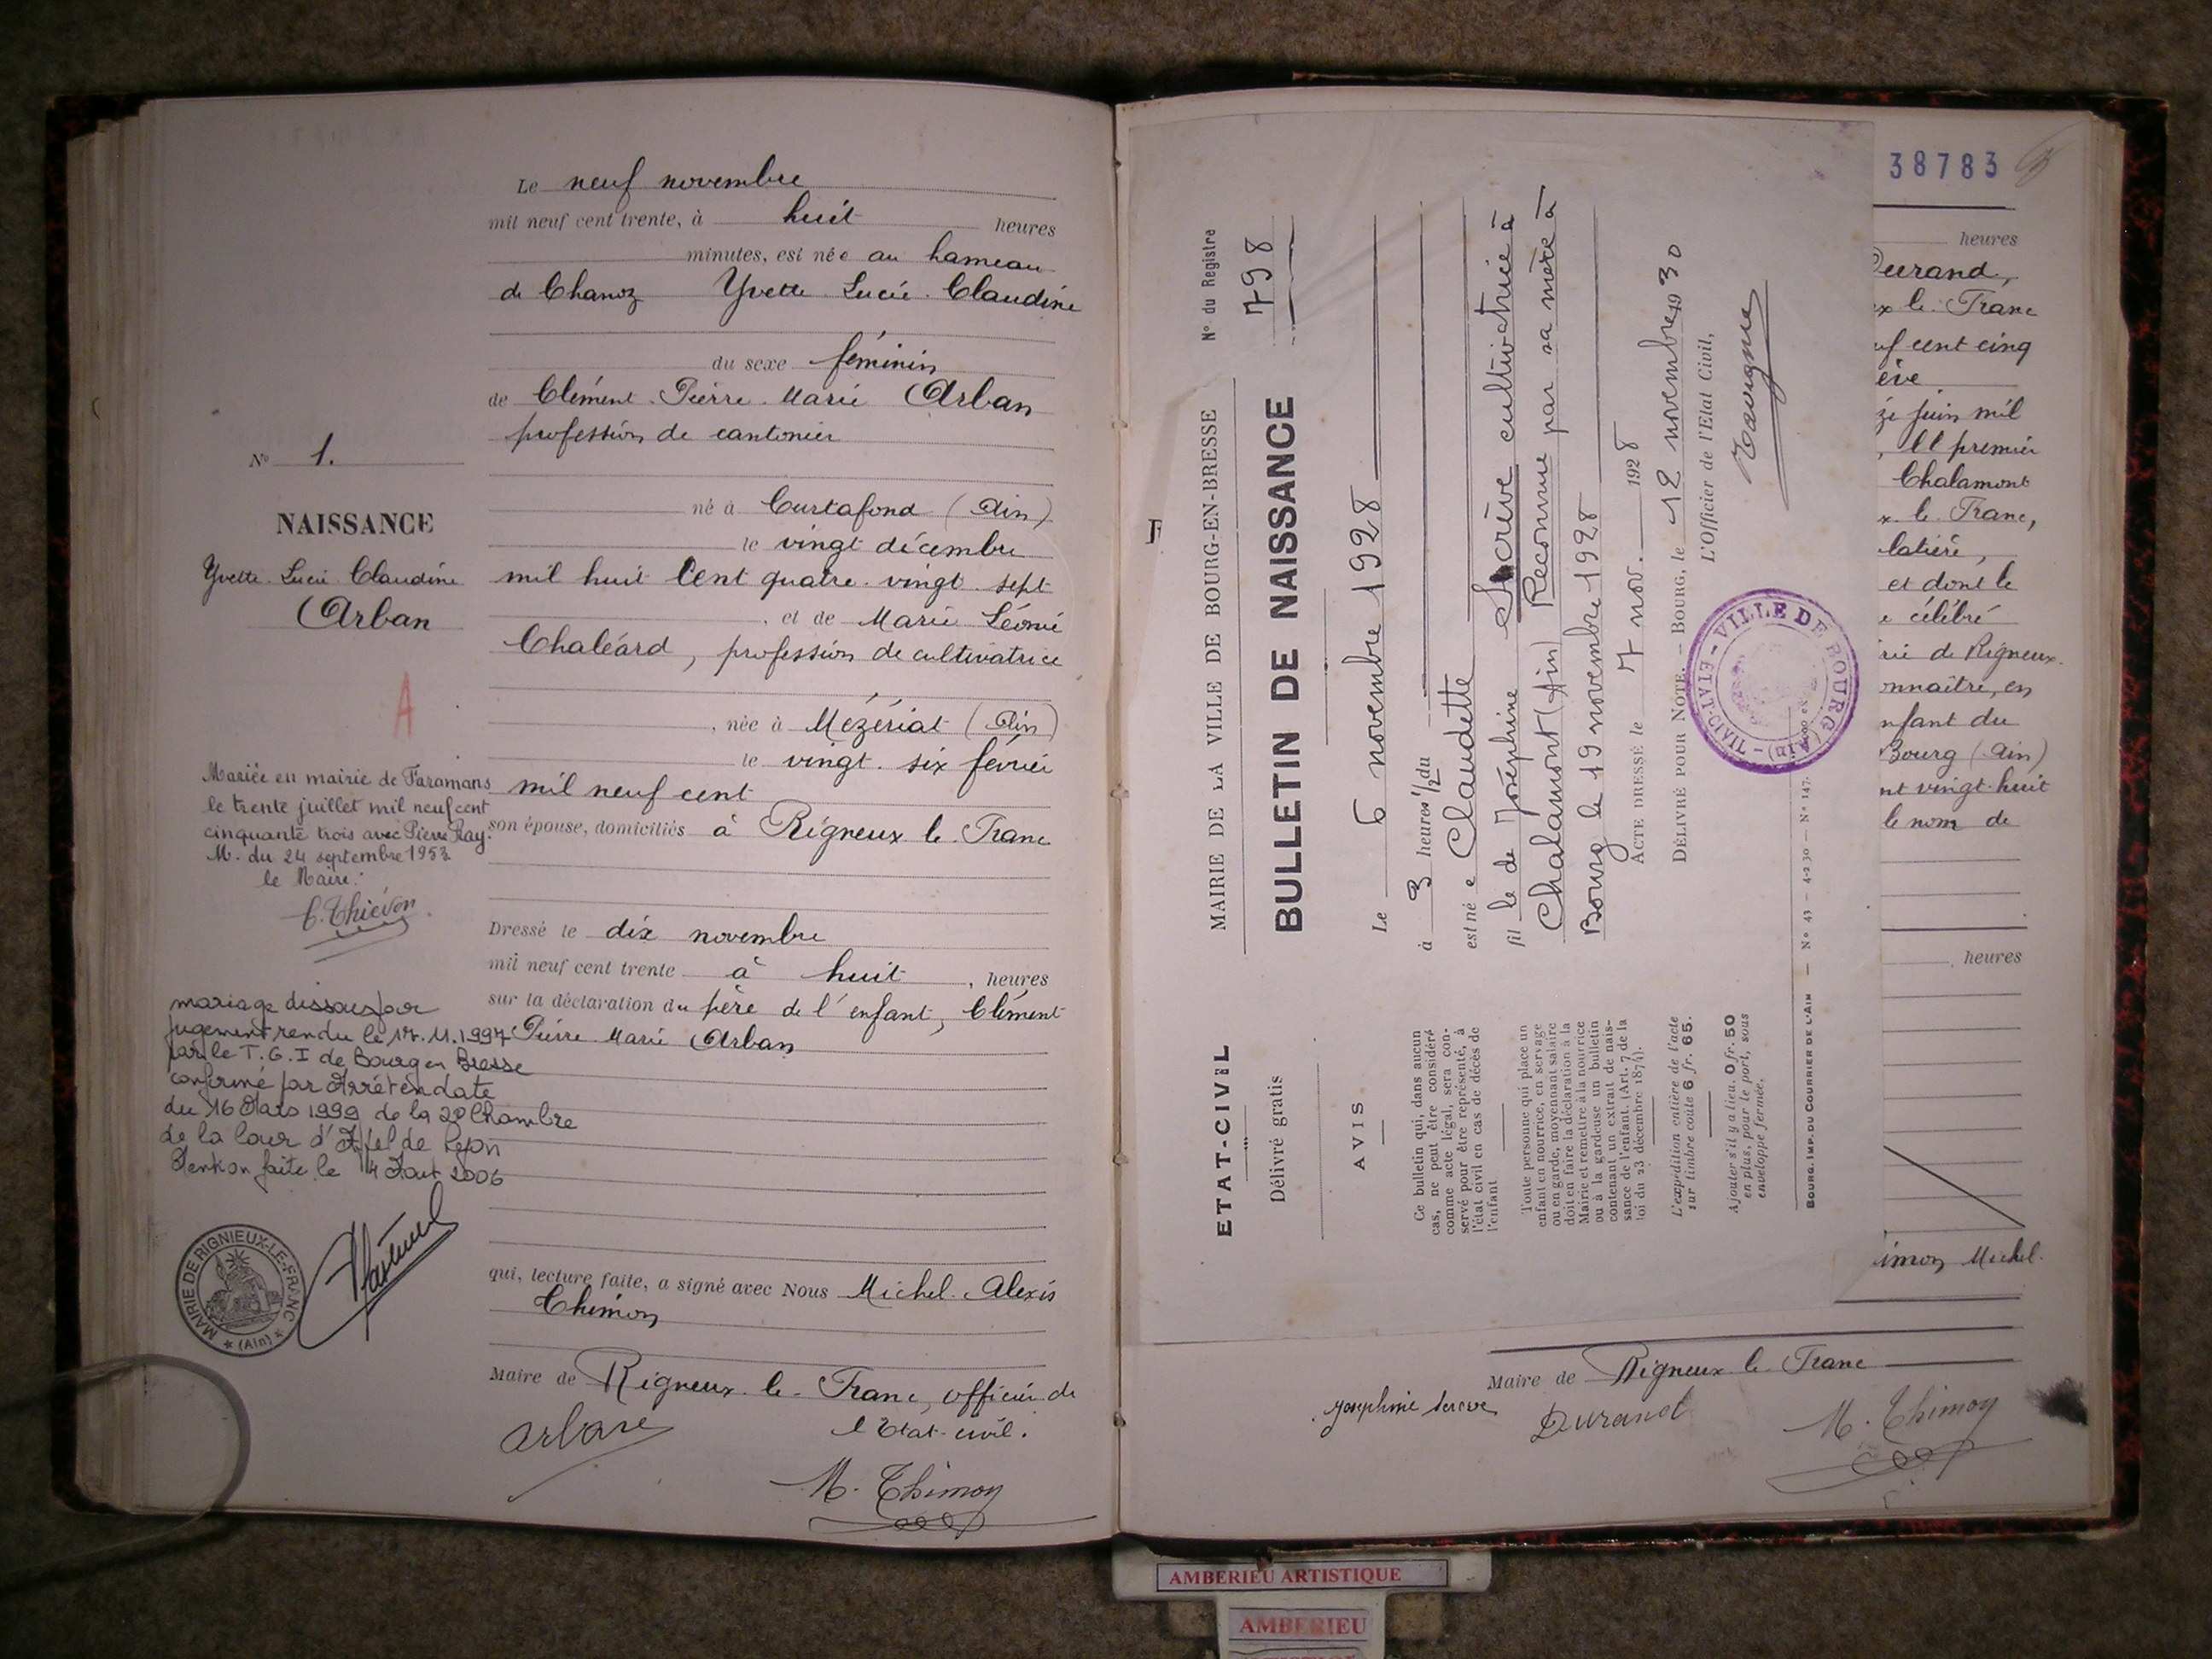 Le neuf novembre
mil neuf cent trente, à huit heures
minutes, est née au hameau
de Chanoz Yvette Lucie Claudine
du sexe féminin
de Clément Pierre Marie Arban
profession de cantonier
N° 1.
né à Curtafond (Ain)
NAISSANCE
le vingt décembre
Yvette Lucie Claudine
mil huit cent quatre vingt sept
Arban
, et de Marie Léonie
Chaléard, profession de cultivatrice
A
, née à Mézériat (Ain)
le vingt six février
mil neuf cent
son épouse, domiciliés à Rigneux le Franc
Mariée en mairie de Faramans
le trente juillet mil neuf cent
cinquante trois avec Pierre Ray.
M. du 24 septembre 1953
le Maire:
C. Thiévon
Dressé le dix novembre
mil neuf cent trente à huit, heures
sur la déclaration du père de l'enfant, Clément
Pierre Marie Arban
mariage dissous par
jugement rendu le 17.11.1997
par le T.G.I de Bourg en Bresse
confirmé par Arrêt en date
du 16 Mars 1999 de la 2e Chambre
de la Cour d'Appel de Lyon
Mention faite le 4 Aout 2006
MAIRIE DE RIGNIEUX-LE-FRANC
★ (Ain) ★
qui, lecture faite, a signé avec Nous Michel Alexis
Thimon
Maire de Rigneux le Franc, officier de
l'Etat-civil.
Arban
M. Thimon
ETAT-CIVIL
Délivré gratis
AVIS
Ce bulletin qui, dans aucun
cas, ne peut être considéré
comme acte légal, sera con-
servé pour être représenté, à
l'état civil en cas de décès de
l'enfant
Toute personne qui place un
enfant en nourrice, en sevrage
ou en garde, moyennant salaire
doit en faire la déclaration à la
Mairie et remettre à la nourrice
ou à la gardeuse un bulletin
contenant un extrait de nais-
sance de l'enfant. (Art. 7 de la
loi du 23 décembre 1874).
L'expédition entière de l'acte
sur timbre coûte 6 fr. 65.
Ajouter s'il y a lieu. 0 fr. 50
en plus, pour le port, sous
enveloppe fermée.
MAIRIE DE LA VILLE DE BOURG-EN-BRESSE
N° du Registre
798
BULLETIN DE NAISSANCE
Le 6 novembre 1928
à 3 heures 1/2 du
est né e Claudette Serève cultivatrice à
fil le de Joséphine
Chalamont (Ain) Reconnue par sa mère à
Bourg le 19 novembre 1928
ACTE DRESSÉ le 7 nov. 1928
DÉLIVRÉ POUR NOTE. — BOURG, le 12 novembre 1930
L'Officier de l'Etat Civil,
ETAT-CIVIL - VILLE DE BOURG - (Ain)
BOURG. IMP. DU COURRIER DE L'AIN — N° 43 — 4-2 30 — N° 147.
38783
heures
Durand,
ex le Franc
uf cent cinq
ève
ze juin mil
, le premier
Chalamont
x le Franc,
latière,
et dont le
e célébré
rie de Rigneux.
onnaître, en
nfant du
Bourg (Ain)
nt vingt-huit
le nom de
heures
imon Michel.
Maire de Rigneux le Franc
Joséphine Serève
Durand
M. Thimon
AMBERIEU ARTISTIQUE
AMBERIEU